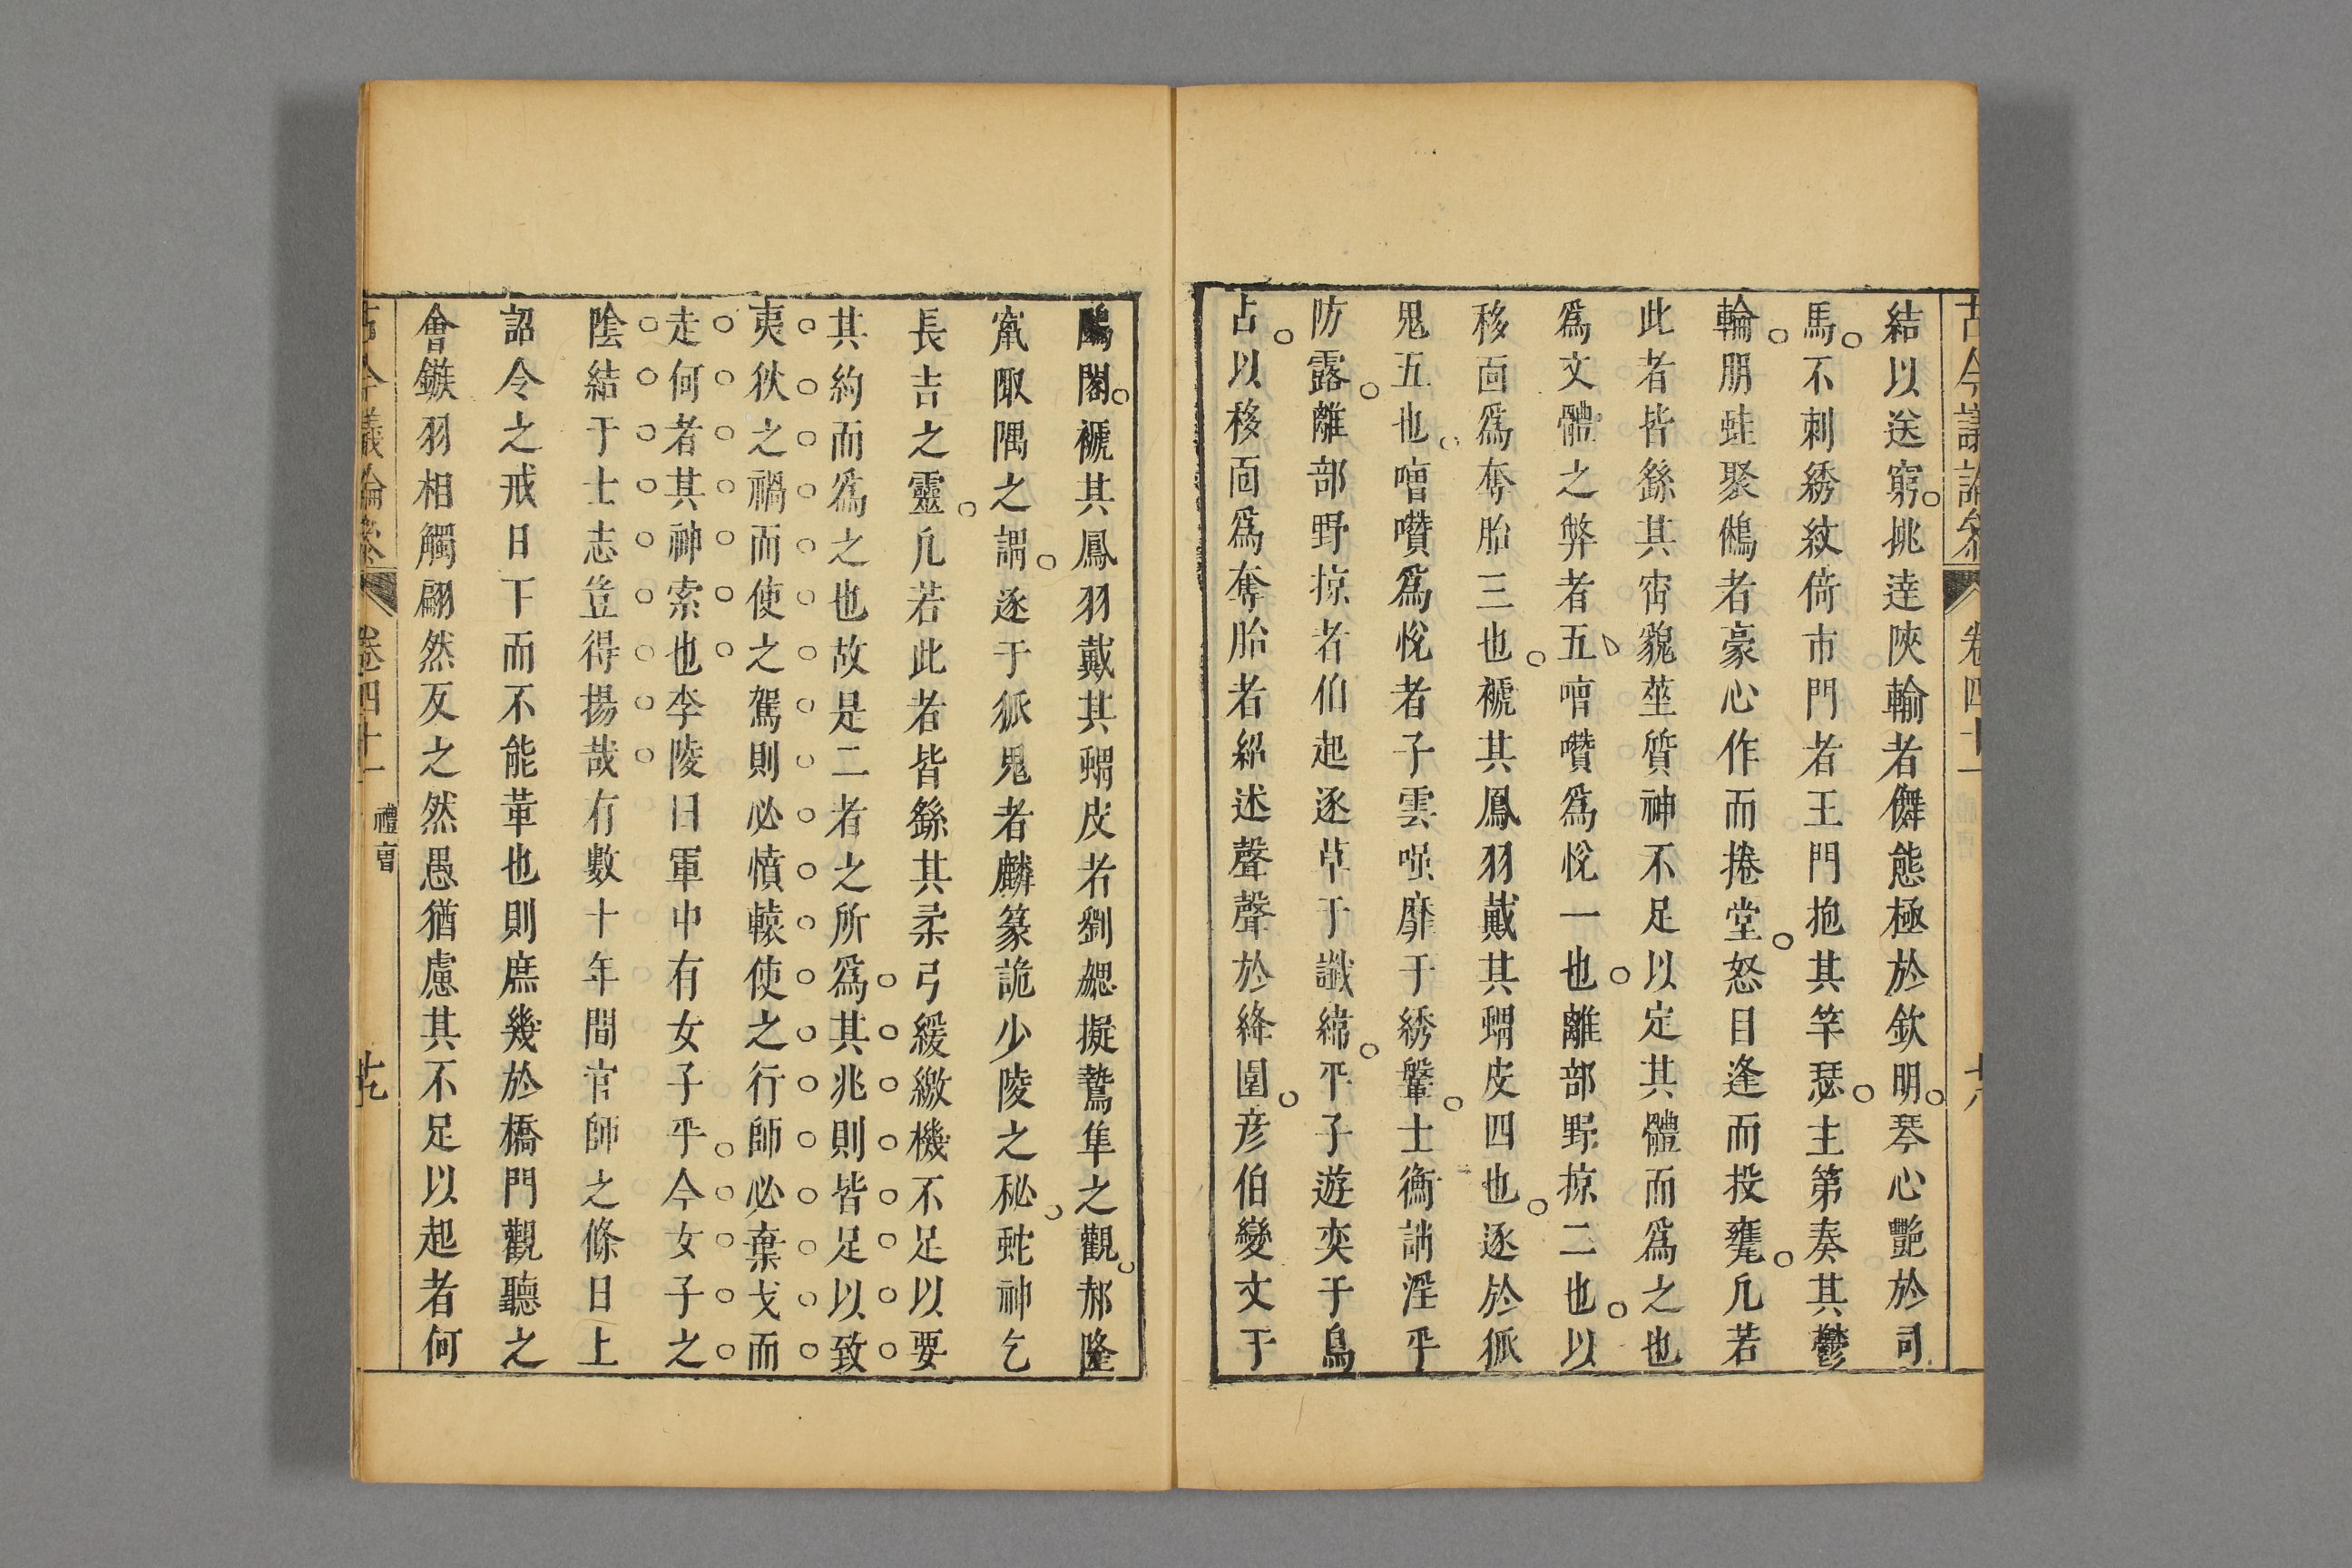 古今議論參 卷四十一
結以送窮挑達陝輸者儛態極於欽明琴心艷於司
馬不刺綉紋倚市門者王門抱其竽瑟主第奏其鬱
輪朋蛙聚鵂者豪心作而捲堂怒目逢而投甕凢若
此者皆繇其宵貌莖質神不足以定其體而爲之也
爲文體之弊者五噆囋爲悅一也離部野掠二也以
移面爲奪胎三也褫其鳳羽戴其蝟皮四也逐於狐
鬼五也噆囋爲悅者子雲嘆靡于綉鞶士衡誚淫乎
防露離部野掠者伯起逐草于讖緯平子遊奕于鳥
占以移面爲奪胎者紹述聲聲於絳園彥伯變文于
鷗閣褫其鳳羽戴其蝟皮者劉勰擬鷙隼之觀郝隆
甯陬隅之謂逐于狐鬼者麟篆詭少陵之秘蛇神乞
長吉之靈凢若此者皆繇其柔弓緩繳機不足以要
其約而爲之也故是二者之所爲其兆則皆足以致
夷狄之禍而使之駕則必憤轅使之行師必棄戈而
走何者其神索也李陵曰軍中有女子乎今女子之
陰結于士志豈得揚哉有數十年間官師之條日上
詔令之戒日下而不能革也則庶幾於橋門觀聽之
會鏃羽相觸翩然反之然愚猶慮其不足以起者何
古今議論參 卷四十一 禮曹 十九